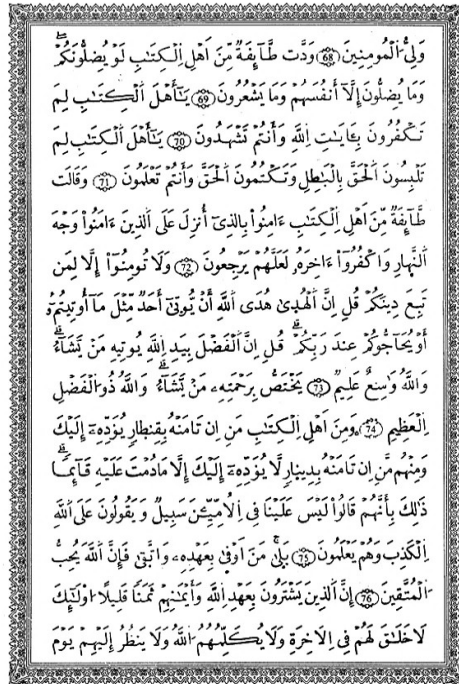 وَلِيُّ اُ۬لْمُومِنِينَ ۝68 وَدَّت طَّآئِفَةٌ مِّنَ اَهْلِ اِ۬لْكِتَٰبِ لَوْ يُضِلُّونَكُمْ
وَمَا يُضِلُّونَ إِلَّآ أَنفُسَهُمْ وَمَا يَشْعُرُونَ ۝69 يَٰٓأَهْلَ اَ۬لْكِتَٰبِ لِمَ
تَكْفُرُونَ بِـَٔايَٰتِ اِ۬للَّهِ وَأَنتُمْ تَشْهَدُونَ ۝70 يَٰٓأَهْلَ اَ۬لْكِتَٰبِ لِمَ
تَلْبِسُونَ اَ۬لْحَقَّ بِالْبَٰطِلِ وَتَكْتُمُونَ اَ۬لْحَقَّ وَأَنتُمْ تَعْلَمُونَ ۝71 وَقَالَت
طَّآئِفَةٌ مِّنَ اَهْلِ اِ۬لْكِتَٰبِ ءَامِنُواْ بِالذِےٓ أُنزِلَ عَلَى اَ۬لذِينَ ءَامَنُواْ وَجْهَ
اَ۬لنَّهَارِ وَاكْفُرُوٓاْ ءَاخِرَهُۥ لَعَلَّهُمْ يَرْجِعُونَ ۝72 وَلَا تُومِنُوٓاْ إِلَّا لِمَن
تَبِعَ دِينَكُمْ قُلِ اِنَّ اَ۬لْهُدَىٰ هُدَى اَ۬للَّهِ أَنْ يُّوتَىٰٓ أَحَدٌ مِّثْلَ مَآ أُوتِيتُمُۥٓ
أَوْ يُحَآجُّوكُمْ عِندَ رَبِّكُمْ قُلِ اِنَّ اَ۬لْفَضْلَ بِيَدِ اِ۬للَّهِ يُوتِيهِ مَنْ يَّشَآءُ
وَاللَّهُ وَٰسِعٌ عَلِيمٌ ۝73 يَخْتَصُّ بِرَحْمَتِهِۦ مَنْ يَّشَآءُ وَاللَّهُ ذُو اُ۬لْفَضْلِ
اِ۬لْعَظِيمِ ۝74 وَمِنَ اَهْلِ اِ۬لْكِتَٰبِ مَنِ اِن تَامَنْهُ بِقِنطَارٍ يُؤَدِّهِۦٓ إِلَيْكَ
وَمِنْهُم مَّنِ اِن تَامَنْهُ بِدِينَارٍ لَّا يُؤَدِّهِۦٓ إِلَيْكَ إِلَّا مَا دُمْتَ عَلَيْهِ قَآئِماً
ذَٰلِكَ بِأَنَّهُمْ قَالُواْ لَيْسَ عَلَيْنَا فِے اِ۬لُامِّيِّـۧنَ سَبِيلٌ وَيَقُولُونَ عَلَى اَ۬للَّهِ
اِ۬لْكَذِبَ وَهُمْ يَعْلَمُونَ ۝75 بَلَىٰ مَنَ اَوْفَىٰ بِعَهْدِهِۦ وَاتَّقَىٰ فَإِنَّ اَ۬للَّهَ يُحِبُّ
اُ۬لْمُتَّقِينَ ۝76 إِنَّ اَ۬لذِينَ يَشْتَرُونَ بِعَهْدِ اِ۬للَّهِ وَأَيْمَٰنِهِمْ ثَمَناً قَلِيلاً اُوْلَٰٓئِكَ
لَا خَلَٰقَ لَهُمْ فِے اِ۬لَاخِرَةِ وَلَا يُكَلِّمُهُمُ اُ۬للَّهُ وَلَا يَنظُرُ إِلَيْهِمْ يَوْمَ